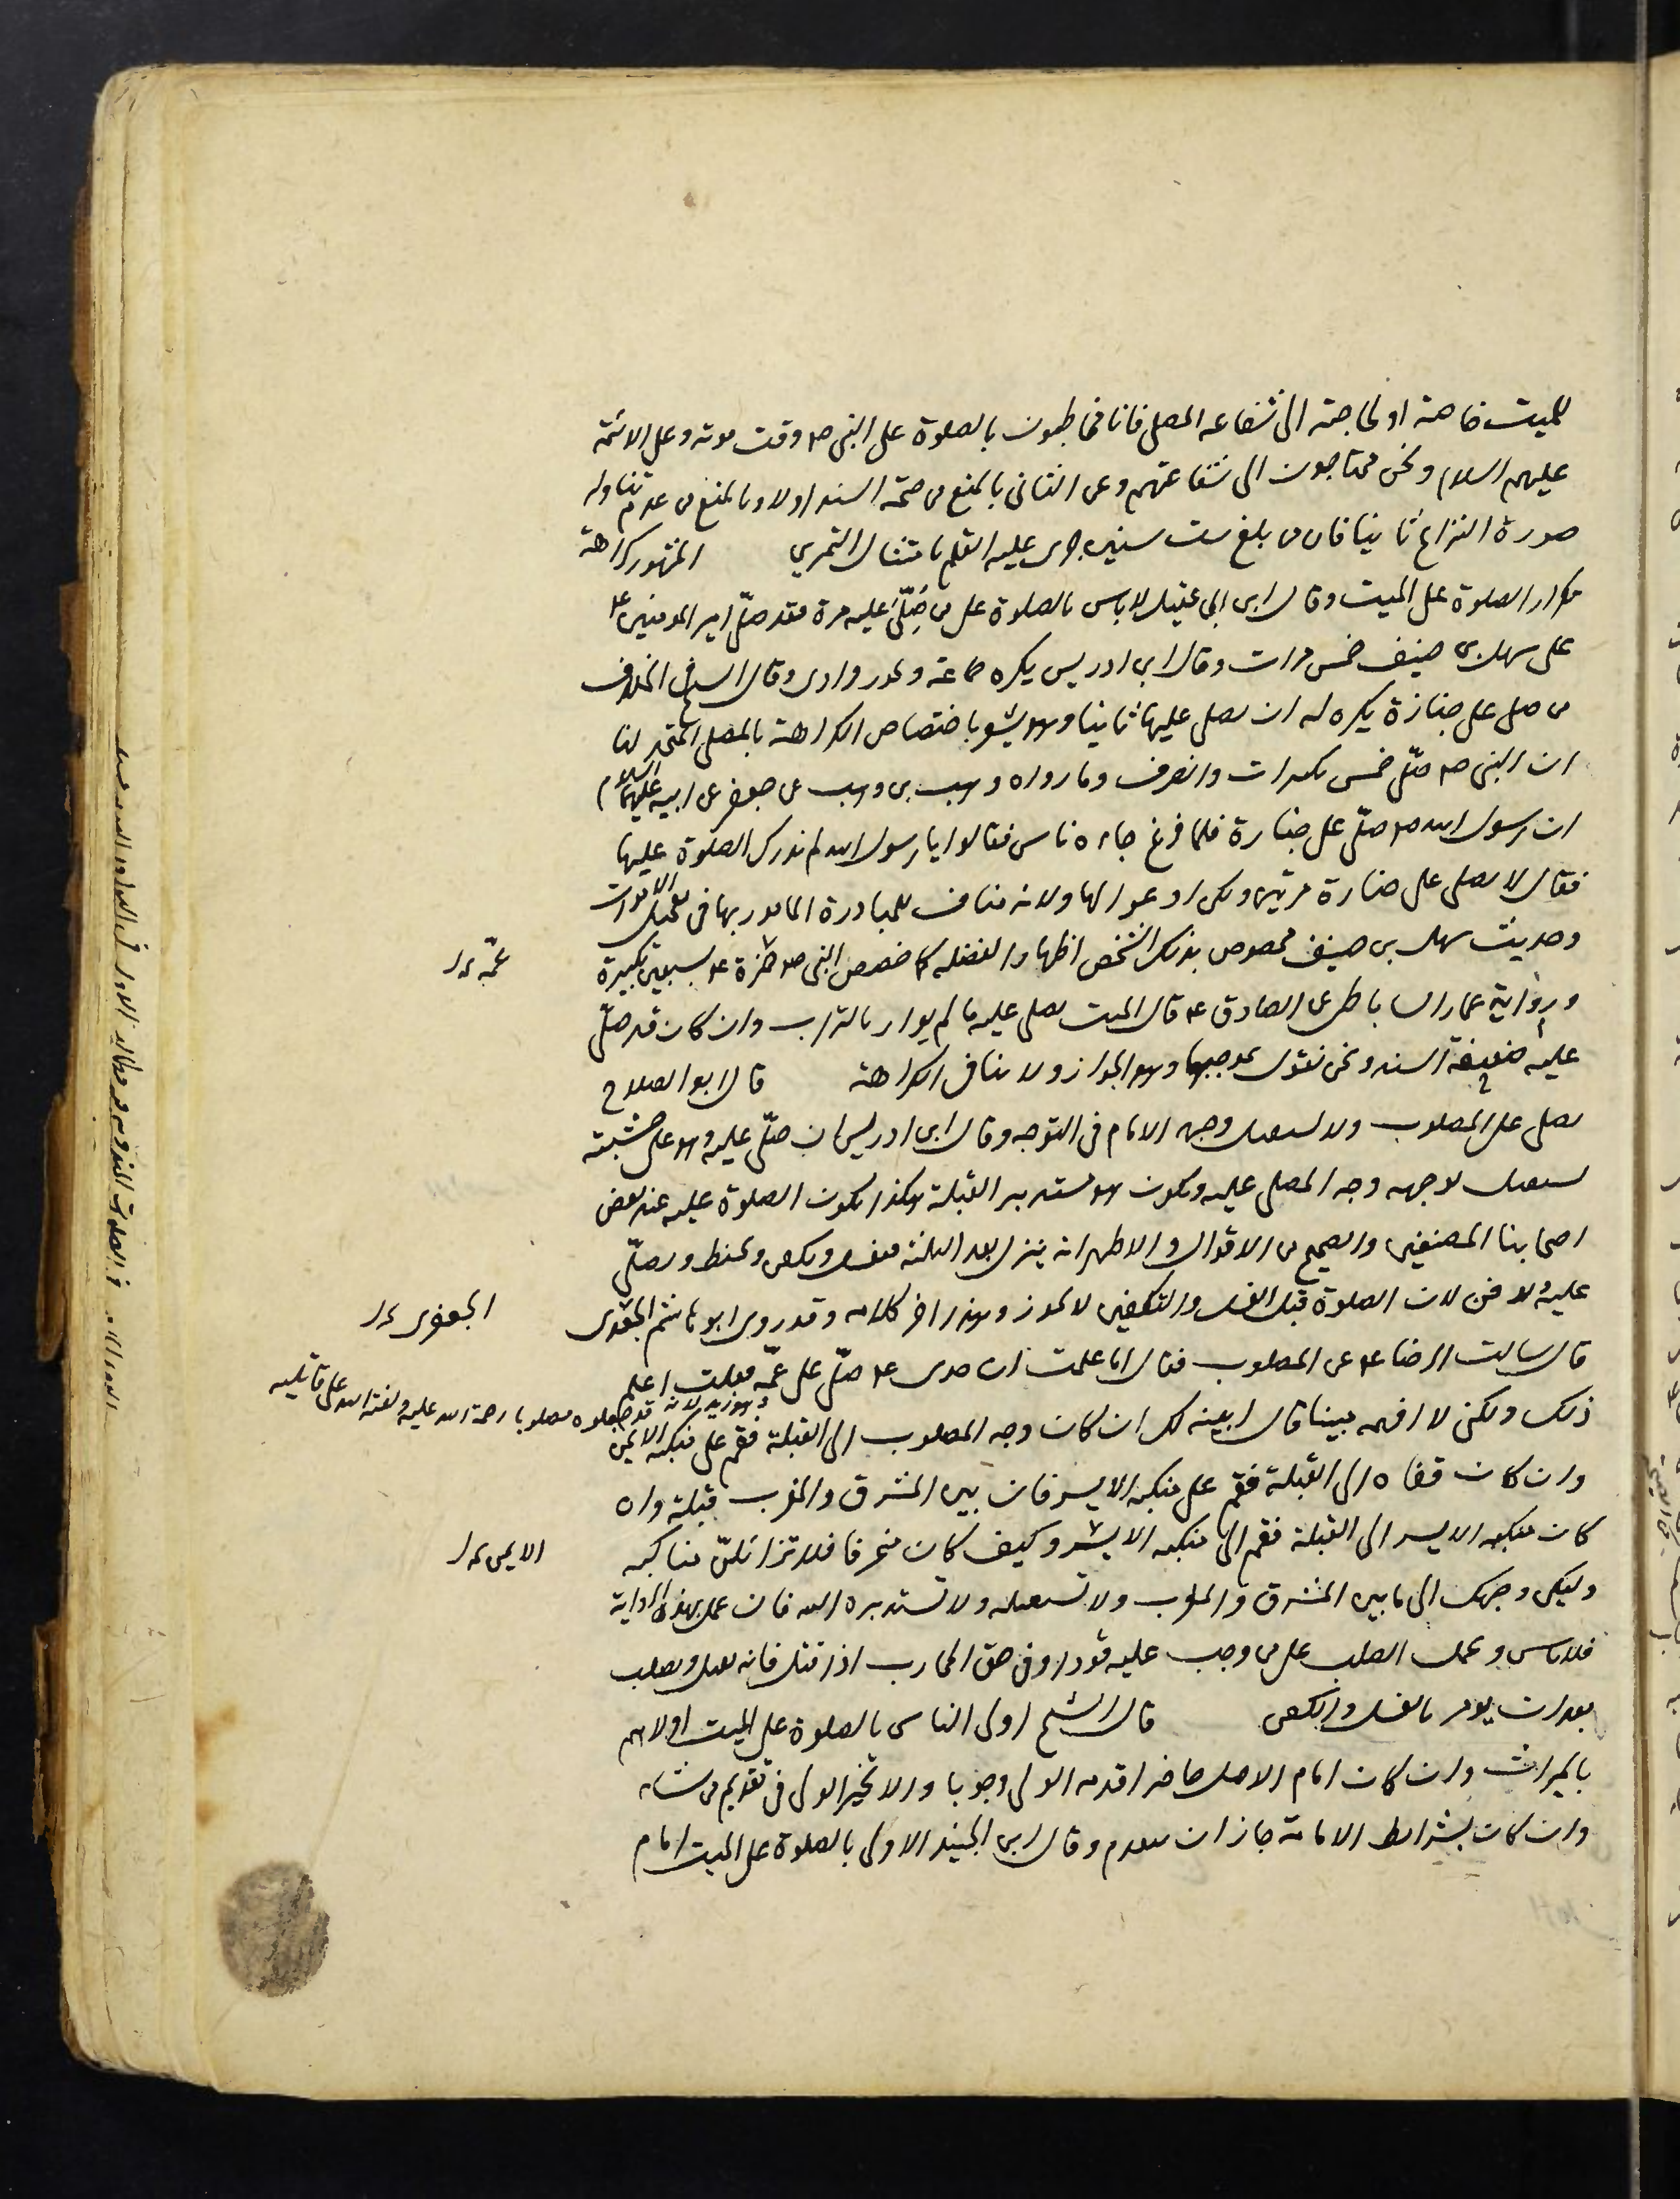 للميت خاصة او لحاجته الى شفاعه المصلى فانا مخاطبون بالصلوة على النبى صم وقت موته وعلى الائمة
عليهم السلام ونحن محتاجون الى شفاعتهم وعن الثانى بالمنع من صحة السند اولا وبالمنع من عدم تناوله
صورة النزاع ثانيا فان من بلغ ست سنين جرى عليه القلم بامتثال التمرين المشهور كراهة
تكرار الصلوة على الميت وقال ابن ابى عقيل لاباس بالصلوة على من صُلّى عليه مرة فقد صلّى امير المومنين ع
على سهل بن حنيف خمس مرات وقال ابن ادريس يكره جماعة ويجوز فرادى وقال الشيخ فى الخلاف
من صلى على جنازة يكره له ان يصلى عليها ثانيا وهو يشعر باختصاص الكراهة بالمصلى المتحد لنا
ان النبى صم صلّى خمس تكبيرات وانصرف وما رواه وهب بن وهب عن جعفر عن ابيه عليهما السلام
ان رسول الله صم صلّى على جنازة فلما فرغ جاءه ناس فقالوا يا رسول الله لم ندرك الصلوة عليها
فقال لا يصلى على جنازة مرتين ولكن ادعوا لها ولانه مناف للمبادرة المامور بها فى تعجيل الاموات
وحديث سهل بن حنيف مخصوص بذلك الشخص اظهارا لفضله كما خصص النبى صم حمزة ع بسبعين تكبيرة
عمّه ع
ورواية عمار الساباطى عن الصادق ع قال الميت يصلى عليه ما لم يوار بالتراب وان كان قد صلّى
عليه ضعيفة السند ونحن نقول بموجبها وهو الجواز ولا ينافى الكراهة قال ابو الصلاح
يصلى على المصلوب ولا يستقبل وجهه الامام فى التوجه وقال ابن ادريس ان صلّى عليه وهو على خشبته
يستقبل بوجهه وجه المصلى عليه ويكون هو مستدبر القبلة هكذا يكون الصلوة عليه عند بعض
اصحابنا المصنفين والصحيح من الاقوال والاظهر انه ينزل بعد الثلثة فيغسل ويكفن ويحنط ويصلّى
عليه ولا دفن لان الصلوة قبل الغسل والتكفين لا تجوز وهذا اخر كلامه وقد روى ابو هاشم الجعفرى
الجعفرى
قال سالت الرضا ع عن المصلوب فقال اما علمت ان جدى ع صلّى على عمّه فقلت اعلم
وهو زيد لانه قد جعلوه مصلوبا رحمة الله عليه ولعنة الله على قاتليه
ذلك ولكنى لا افهمه مبينا قال ابينه لك ان كان وجه المصلوب الى القبلة فقم على منكبه الايمن
وان كان قفاه الى القبلة فقم على منكبه الايسر فان بين المشرق والمغرب قبلة وان
كان منكبه الايسر الى القبلة فقم الى منكبه الايسر وكيف كان منحرفا فلا تزائلنّ مناكبه
الايمن
وليكن وجهك الى ما بين المشرق والمغرب ولا تستقبله ولا تستدبره البته فان عمل بهذه الرواية
فلا باس ويحمل الصلب على من وجب عليه قودا وفى حق المحارب اذا قتل فانه يقتل ويصلب
بعد ان يومر بالغسل والكفن قال الشيخ اولى الناس بالصلوة على الميت اولاهم
بالميراث وان كان امام الاصل حاضرا قدمه الولى وجوبا والا تخير الولى فى تقديم من شاء
وان كان بشرائط الامامة جاز ان يتقدم وقال ابن الجنيد الاولى بالصلوة على الميت امام